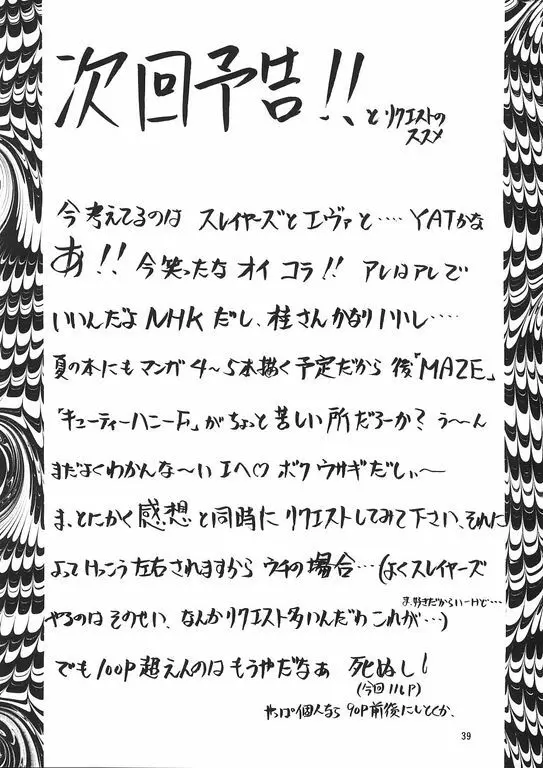 次回予告!! とリクエストの
ススメ
今考えてるのは スレイヤーズとエヴァと‥‥YATかな
あ!! 今笑ったな オイ コラ!! アレはアレで
いいんだよNHKだし、桂さんかなりいいし‥‥
夏の本にもマンガ4〜5本描く予定だから 後「MAZE」
「キューティーハニーF」がちょっと苦しい所だろーか? う〜〜ん
まだよくわかんな〜い エヘ♡ ボク ウサギだしぃ〜
ま、とにかく感想と同時にリクエストしてみて下さい、それに
よってけっこう左右されますから ウチの場合…(よくスレイヤーズ
ま、好きだからいーけど…
やるのは そのせい、なんかリクエスト多いんだわ これが…)
でも100P超えんのはもうやだなぁ 死ぬし!
(今回116P)
やっぱ個人なら90P前後にしとくか、
39